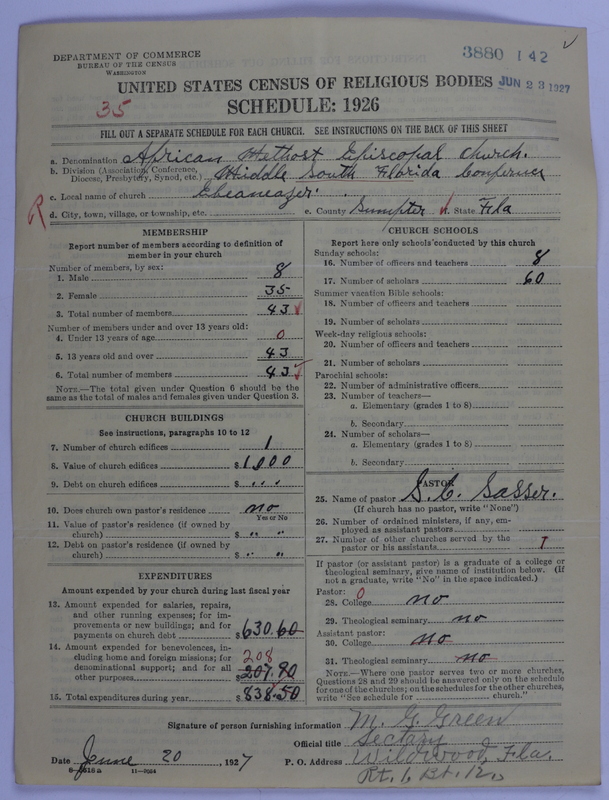 DEPARTMENT OF COMMERCE
BUREAU OF THE CENSUS
WASHINGTON
3880 142
UNITED STATES CENSUS OF RELIGIOUS BODIES
JUN 23 1927
35
SCHEDULE: 1926
FILL OUT A SEPARATE SCHEDULE FOR EACH CHURCH. SEE INSTRUCTIONS ON THE BACK OF THIS SHEET
a. Denomination African Methost Episcopal Church.
b. Division (Association, Conference, Diocese, Presbytery, Synod, etc.) Middle South Florida Conference
c. Local name of church Ebeaneazer.
R d. City, town, village, or township, etc. e. County Sumpter f. State Fla
MEMBERSHIP
Report number of members according to definition of
member in your church
Number of members, by sex:
1. Male 8
2. Female 35
3. Total number of members 43
Number of members under and over 13 years old:
4. Under 13 years of age 0
5. 13 years old and over 43
6. Total number of members 43
NOTE.—The total given under Question 6 should be the
same as the total of males and females given under Question 3.
CHURCH BUILDINGS
See instructions, paragraphs 10 to 12
7. Number of church edifices 1
8. Value of church edifices $ 1,000
9. Debt on church edifices $ " "
10. Does church own pastor's residence no
Yes or No
11. Value of pastor's residence (if owned by
church) $ " "
12. Debt on pastor's residence (if owned by
church) $ " "
EXPENDITURES
Amount expended by your church during last fiscal year
13. Amount expended for salaries, repairs,
and other running expenses; for im-
provements or new buildings; and for
payments on church debt $ 630.60
14. Amount expended for benevolences, in-
cluding home and foreign missions; for
denominational support; and for all
other purposes 208
$ 207.90
15. Total expenditures during year $ 838.50
CHURCH SCHOOLS
Report here only schools conducted by this church
Sunday schools:
16. Number of officers and teachers 8
17. Number of scholars 60
Summer vacation Bible schools:
18. Number of officers and teachers
19. Number of scholars
Week-day religious schools:
20. Number of officers and teachers
21. Number of scholars
Parochial schools:
22. Number of administrative officers
23. Number of teachers—
a. Elementary (grades 1 to 8)
b. Secondary
24. Number of scholars—
a. Elementary (grades 1 to 8)
b. Secondary
PASTOR
25. Name of pastor S. C. Sasser.
(If church has no pastor, write "None")
26. Number of ordained ministers, if any, em-
ployed as assistant pastors
27. Number of other churches served by the
pastor or his assistants
If pastor (or assistant pastor) is a graduate of a college or
theological seminary, give name of institution below. (If
not a graduate, write "No" in the space indicated.)
Pastor: 0
28. College no
29. Theological seminary no
Assistant pastor:
30. College no
31. Theological seminary no
NOTE.—Where one pastor serves two or more churches,
Questions 28 and 29 should be answered only on the schedule
for one of the churches; on the schedules for the other churches,
write "See schedule for church."
Signature of person furnishing information M. G. Green
Official title Sectary
Date June 20, 1927 P. O. Address Wildwood, Fla.
11—9924 Rt. 1, Bx. 12,